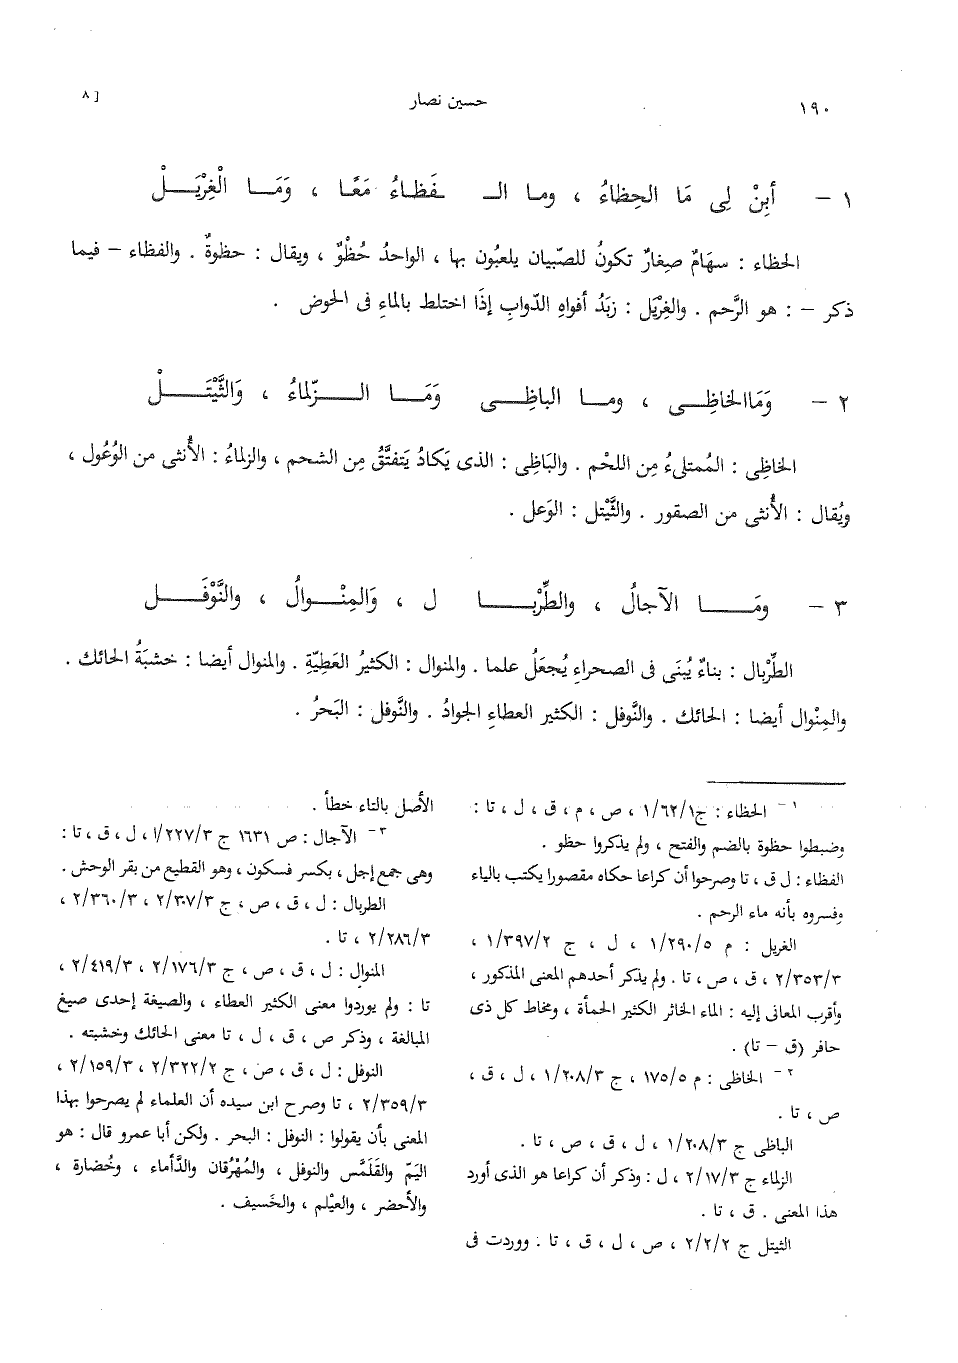 ١٩٠
حسين نصار
[ ٨
١ – أبِنْ لِى مَا الحِظاءُ ، وما الـ ـفَظاءُ مَعًا ، وَمَا الْغِرْيَلْ
الحظاء : سهَامٌ صِغارٌ تكونُ للصّبيان يلعبُون بها ، الواحدُ حُظْوٌ ، ويقال : حظوةٌ . والفظاء – فيما
ذكر – : هو الرَّحم . والغِرْيَل : زبَدُ أفواهِ الدّوابِ إذَا اختلط بالماءِ فى الحوض .
٢ – وَمَاالخاظِى ، وما الباظِى وَمَا الزّلماءُ ، وَالثَّيْتَلْ
الخاظِى : المُمتلىءُ مِن اللحْم . والبَاظِى : الذى يَكادُ يَتفتَّقُ مِن الشحم ، والزلماءُ : الأُنثى من الوُعُول ،
ويُقال : الأُنثى من الصقور . والثَّيْتل : الوَعل .
٣ – ومَا الآجالُ ، والطِّرْبا ل ، وَالمِنْوالُ ، والنَّوْفَل
الطِّرْبال : بناءٌ يُبنَى فى الصحراءِ يُجعَلُ علما . والمنوال : الكثيرُ العَطِيّةِ . والمنوال أيضا : خشبَةُ الحائك .
والمِنْوال أيضا : الحائك . والنَّوفل : الكثير العطاءِ الجوادُ . والنَّوفل : البَحرُ .
١ – الحظاء : ج١/٦٢/١ ، ص ، م ، ق ، ل ، تا :
وضبطوا حظوة بالضم والفتح ، ولم يذكروا حظو .
الفظاء : ل ق ، تا وصرحوا أن كراعا حكاه مقصورا يكتب بالياء
وفسروه بأنه ماء الرحم .
الغريل : م ١/٢٩٠/٥ ، ل ، ج ١/٣٩٧/٢ ،
٢/٣٥٣/٣ ، ق ، ص ، تا . ولم يذكر أحدهم المعنى المذكور ،
وأقرب المعانى إليه : الماء الخاثر الكثير الحمأة ، ومخاط كل ذى
حافر (ق – تا) .
٢ – الخاظى : م ١٧٥/٥ ، ج ١/٢٠٨/٣ ، ل ، ق ،
ص ، تا .
الباظى ج ١/٢٠٨/٣ ، ل ، ق ، ص ، تا .
الزلماء ج ٢/١٧/٣ ، ل : وذكر أن كراعا هو الذى أورد
هذا المعنى . ق ، تا .
الثيتل ج ٢/٢/٢ ، ص ، ل ، ق ، تا . ووردت فى
الأصل بالتاء خطأ .
٣ – الآجال : ص ١٦٣١ ج ١/٢٢٧/٣ ، ل ، ق ، تا :
وهى جمع إجل ، بكسر فسكون ، وهو القطيع من بقر الوحش .
الطربال : ل ، ق ، ص ، ج ٢/٣٠٧/٣ ، ٢/٣٦٠/٣ ،
٢/٢٨٦/٣ ، تا .
المنوال : ل ، ق ، ص ، ج ٢/١٧٦/٣ ، ٢/٤١٩/٣ ،
تا : ولم يوردوا معنى الكثير العطاء ، والصيغة إحدى صيغ
المبالغة ، وذكر ص ، ق ، ل ، تا معنى الحائك وخشبته .
النوفل : ل ، ق ، ص ، ج ٢/٣٢٢/٢ ، ٢/١٥٩/٣ ،
٢/٣٥٩/٣ ، تا وصرح ابن سيده أن العلماء لم يصرحوا بهذا
المعنى بأن يقولوا : النوفل : البحر . ولكن أبا عمرو قال : هو
اليَمّ والقَلَمَّس والنوفل ، والمُهْرُقان والدَّأماء ، وخُضارة ،
والأخضر ، والعيْلم ، والخَسيف .